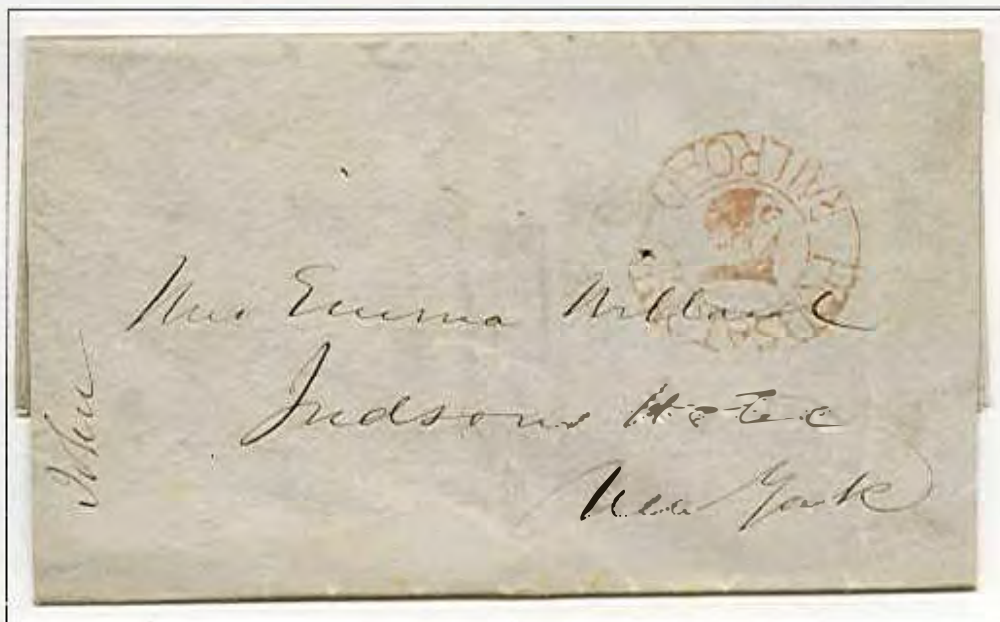 RAILROAD
Mrs Emma Willard
Judsons Hotel
New York